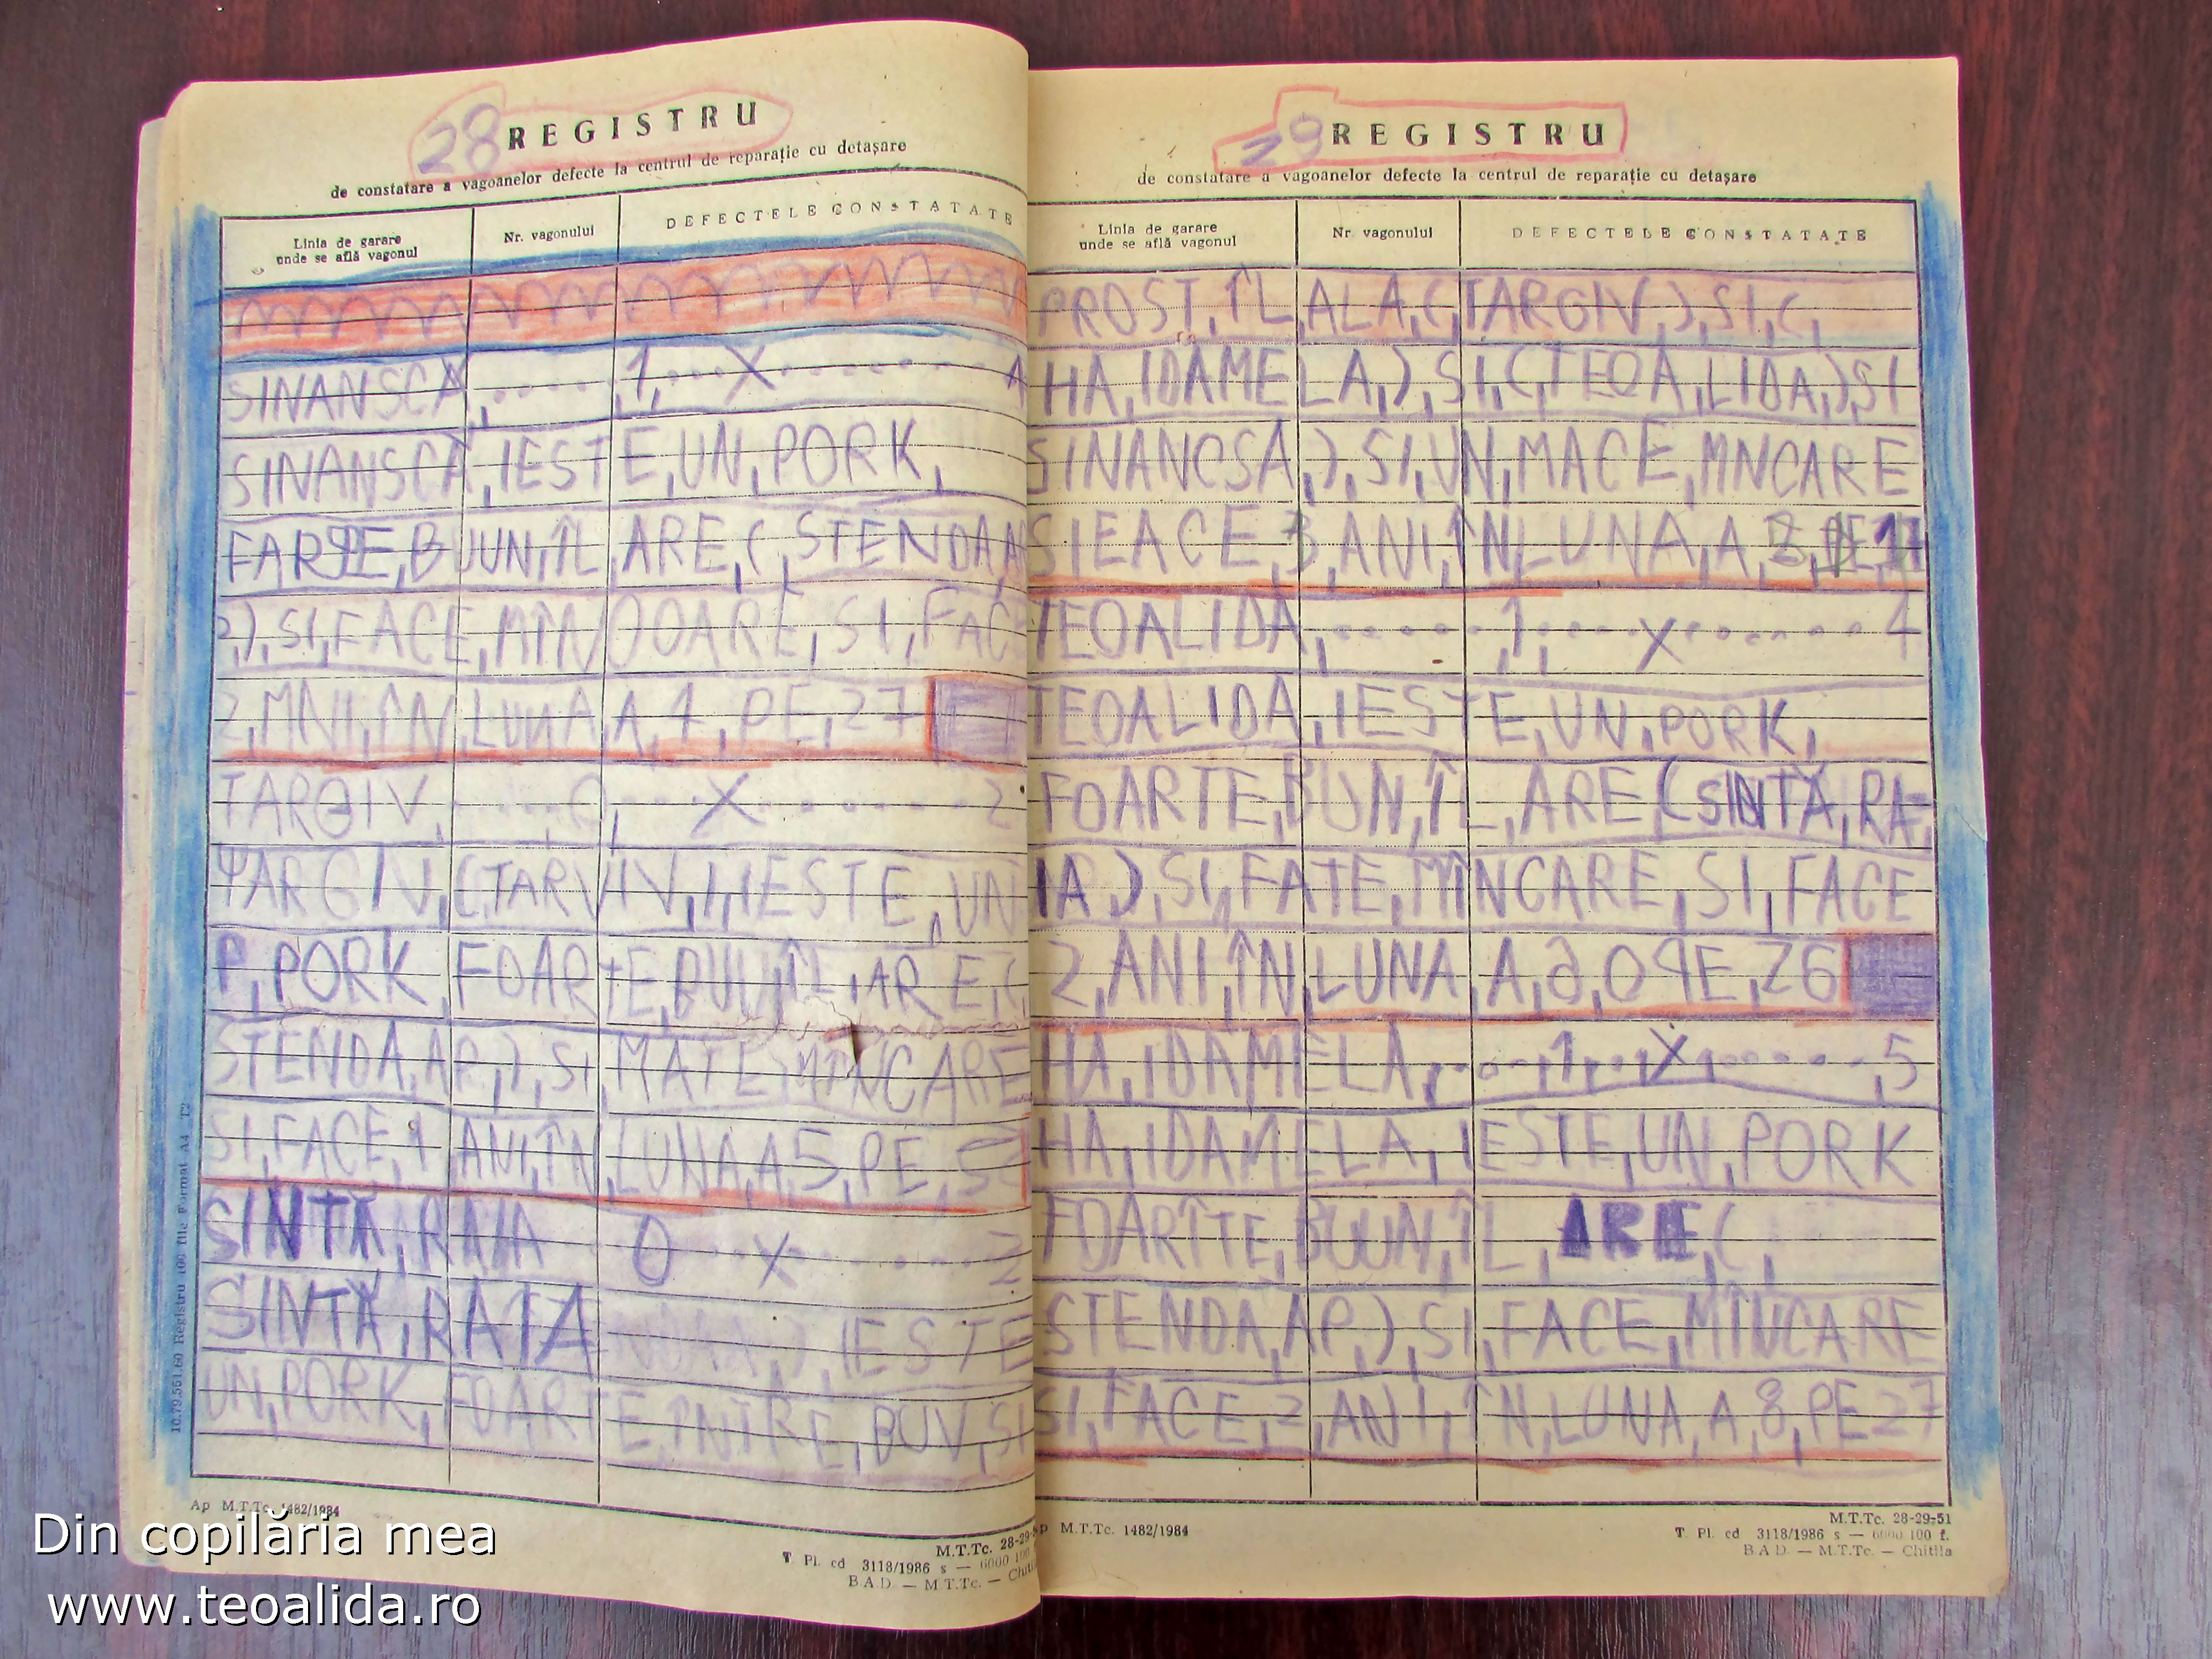 28 REGISTRU
de constatare a vagoanelor defecte la centrul de reparație cu detașare
Linia de garare
unde se află vagonul
Nr. vagonului
DEFECTELE CONSTATATE
SINANSCA, 1, X 4
SINANSCA, IESTE, UN, PORK,
FARTE, BUUN, ÎL, ARE, (, STENDA, A
P,), SI, FACE, MÎNOOARE, SI, FACE
2, MNI, ÎN, LUNA, A, 1, PE, 27
TARGIV, 0, X 2
TARGIV, (TARVIV,), IESTE, UN
P, PORK, FOARTE, BUU, ÎL, ARE, (,
STENDA, AP,), SI, MATE MÎNCARE
SI, FACE, 1, ANI, ÎN, LUNA, A 5, PE, 5
SINTĂ, RAIA 0 X 2
SINTĂ, RAIA ), IESTE
UN, PORK, FOARTE, INTRE, BUV, SI
Ap M.T.Tc. 1482/1984
M.T.Tc. 28-29-
T. Pl. cd 3118/1986 s — 6000 100
B.A.D. — M.T.Tc. — Chiti
10.79.551.60 Registru 100 file Format A4 T2
29 REGISTRU
de constatare a vagoanelor defecte la centrul de reparație cu detașare
Linia de garare
unde se află vagonul
Nr. vagonului
DEFECTELE CONSTATATE
PROST, ÎL, ALA, (TARGIV,), SI, (,
HA, IDAMELA,), SI, (, TEOA, LIDA,) SI
SINANCSA,), SI, UN, MACE, MNCARE
SIEACE, 3, ANI, ÎN, LUNA, A, 3, PE, 17
TEOALIDA, 1, X 4
TEOALIDA, IESTE, UN, PORK,
FOARTE, BUN, ÎL, ARE, (SINTĂ, RA,
IA), SI, FATE, MÎNCARE, SI, FACE
2, ANI, ÎN, LUNA, A, 6, 0 PE, 26
HA, IDAMELA, 1, X, 5
HA, IDAMELA, IESTE, UN, PORK
FOARÎTE, BUUN, ÎL, ARE, (,
STENDA, AP,), SI, FACE, MÎNCARE
SI, FACE, 2, ANI, ÎN, LUNA, A, 8, PE 27
p M.T.Tc. 1482/1984
M.T.Tc. 28-29-51
T. Pl. cd 3118/1986 s — 6000 100 f.
B.A.D. — M.T.Tc. — Chitila
Din copilăria mea
www.teoalida.ro